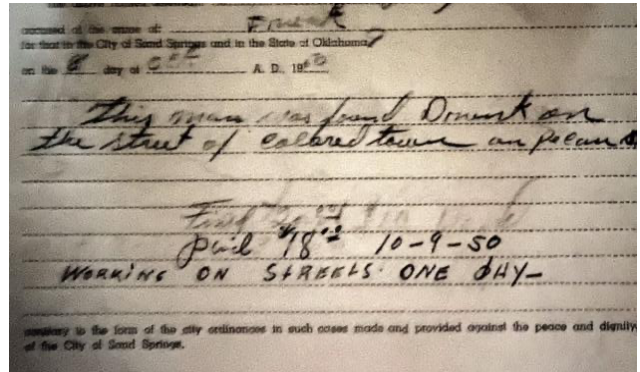 accused of the crime of: Drunk
for that in the City of Sand Springs and in the State of Oklahoma,
on the 8 day of Oct A. D. 19
This man was found Drunk on
the street of colored town on pecan
paid $18.00 10-9-50
WORKING ON STREETS. ONE DAY-
contrary to the form of the city ordinances in such cases made and provided against the peace and dignity
of the City of Sand Springs.